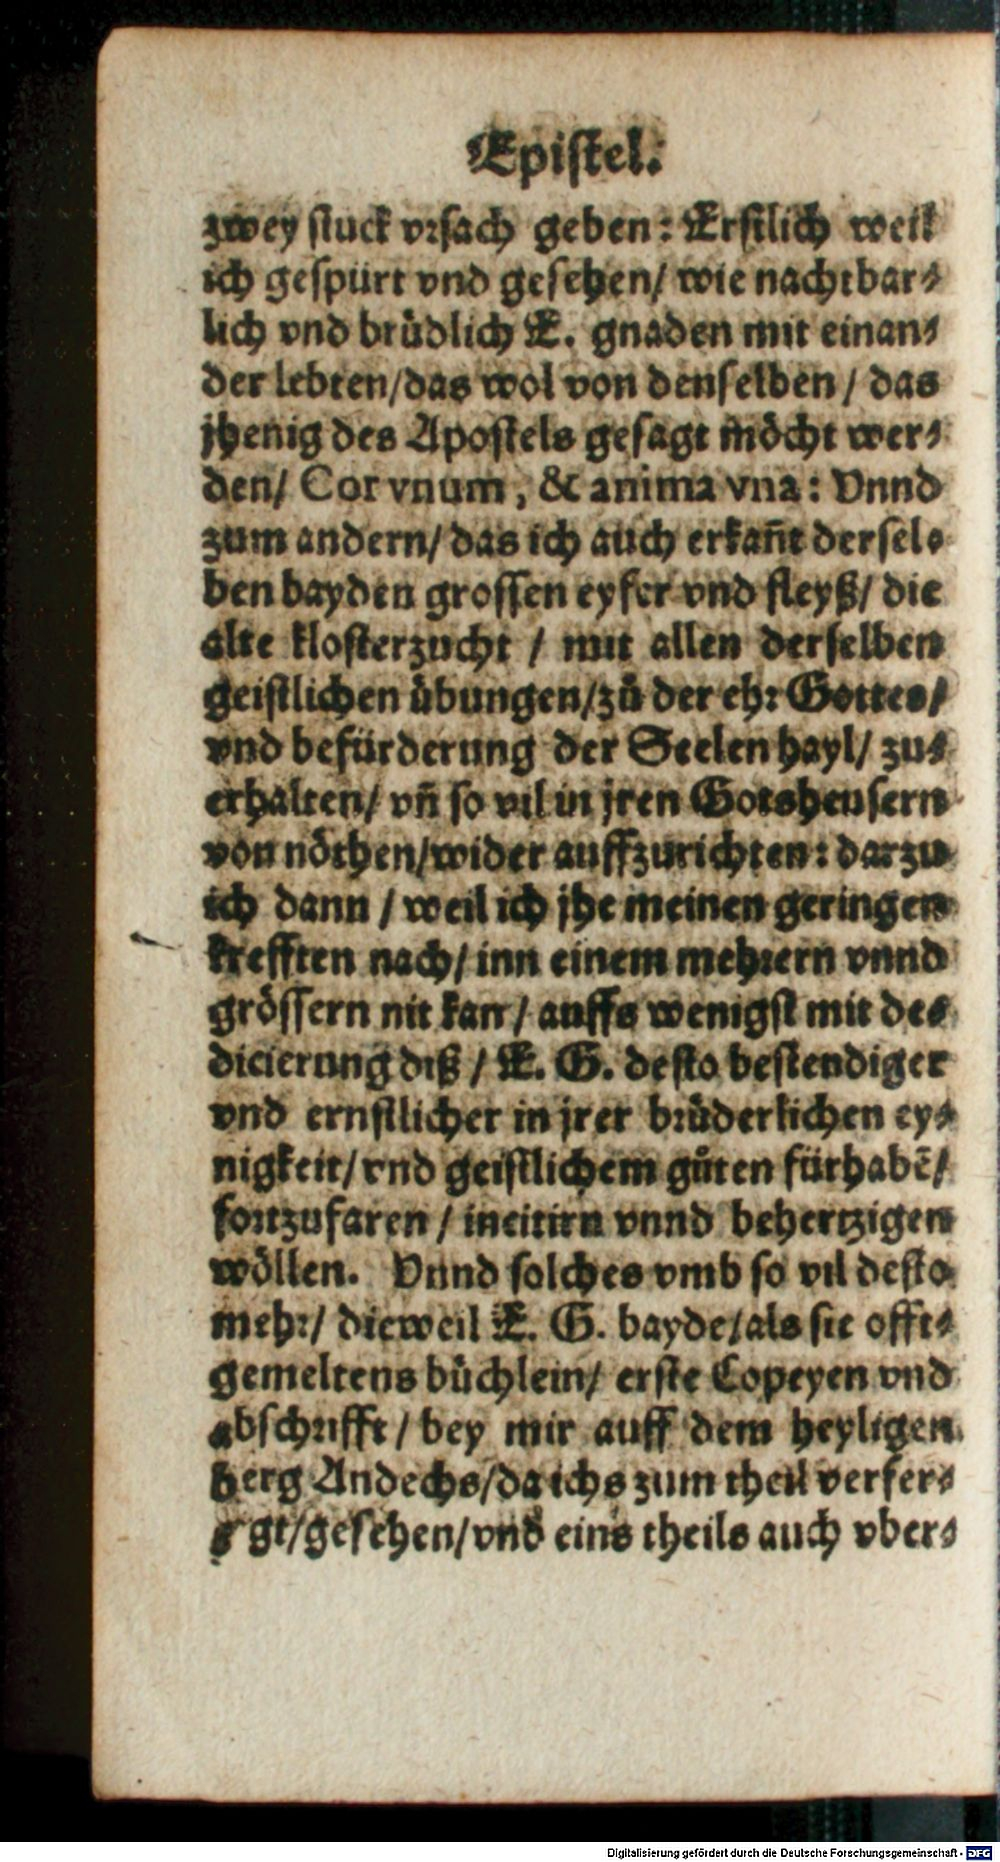 Epistel.
zwey stuck vrsach geben: Erstlich weil
ich gespürt vnd gesehen/ wie nachtbar⸗
lich vnd brüdlich E. gnaden mit einan⸗
der lebten/das wol von denselben / das
jhenig des Apostels gesagt möcht wer⸗
den/ Cor vnum, & anima vna: Vnnd
zum andern/ das ich auch erkañt dersel⸗
ben bayden grossen eyfer vnd fleyß/ die
alte klosterzucht / mit allen derselben
geistlichen übungen/zů der ehr Gottes/
vnd befürderung der Seelen hayl/ zu⸗
erhalten/ vñ so vil in jren Gotsheusern
von nöthen/wider auffzurichten: darzu
ich dann / weil ich jhe meinen geringen
krefften nach/ inn einem mehrern vnnd
grössern nit kan/ auffs wenigst mit de⸗
dicierung diß / E. G. desto bestendiger
vnd ernstlicher in jrer brüderlichen ey⸗
nigkeit/ vnd geistlichem gůten fürhabē/
fortzufaren / incitirn vnnd behertzigen
wöllen. Vnnd solches vmb so vil desto
mehr/ dieweil E. G. bayde/als sie offt⸗
gemeltens büchlein/ erste Copeyen vnd
abschrifft / bey mir auff dem heyligen
berg Andechs/da ichs zum theil verfer⸗
gt/gesehen/vnd eins theils auch vber⸗
Digitalisierung gefördert durch die Deutsche Forschungsgemeinschaft - DFG